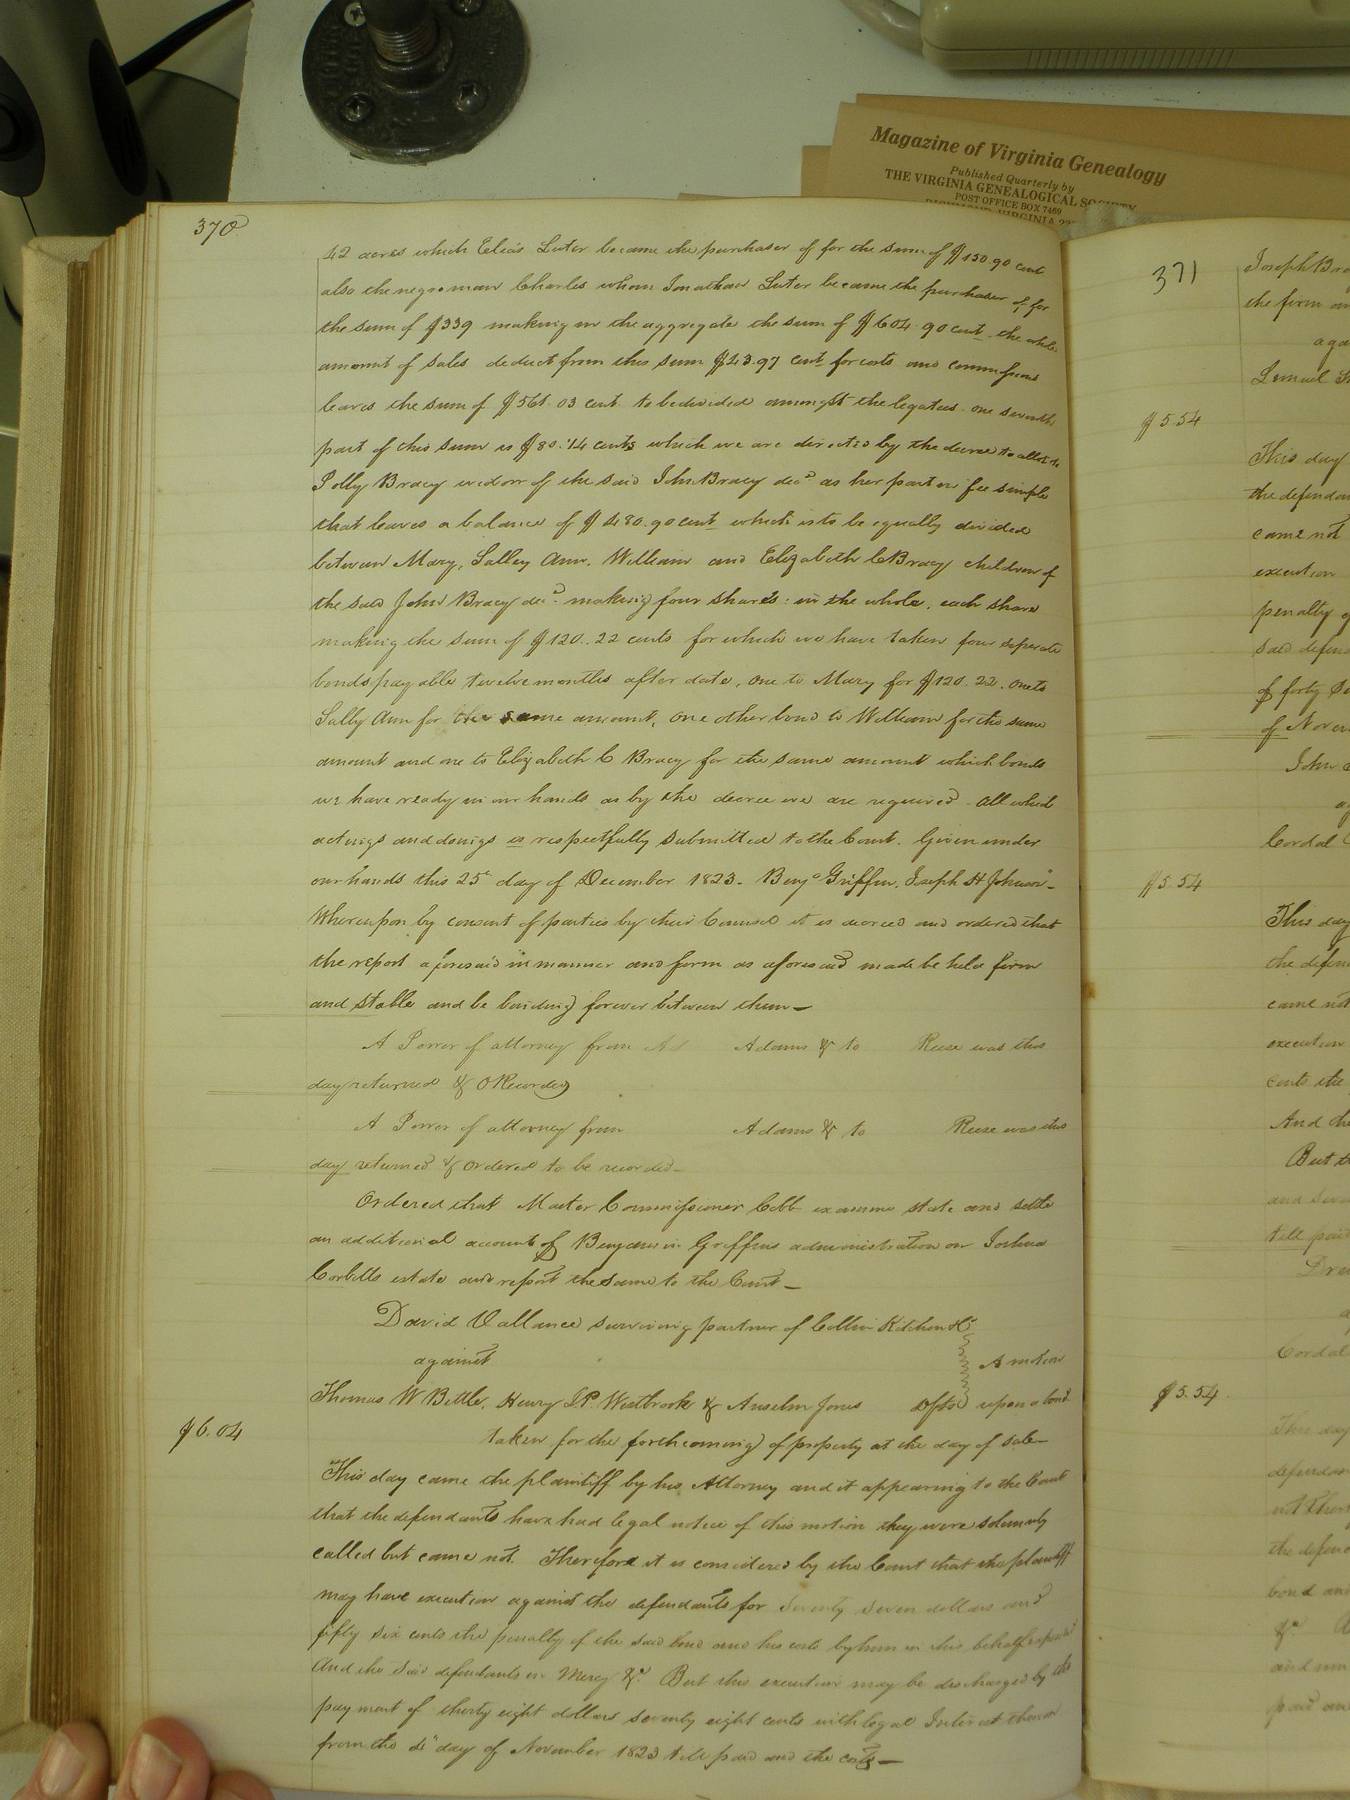 Magazine of Virginia Genealogy
Published Quarterly by
THE VIRGINIA GENEALOGICAL SOCIETY
POST OFFICE BOX 7469
RICHMOND, VIRGINIA
370
42 acres which Elias Luter became the purchaser of for the sum of $130.90 cent
also the negro man Charles whom Jonathan Luter became the purchaser of for
the sum of $339 making in the aggregate the sum of $604.90 cent the whole
amount of sales deduct from this sum $43.97 cent for costs and commissions
leaves the sum of $561.03 cent to be divided amongst the legatees one seventh
part of this sum is $80.14 cents which we are directed by the decree to allot to
Polly Bracy widow of the said John Bracy decd as her part in fee simple
that leaves a balance of $480.90 cent which is to be equally divided
between Mary, Salley Ann, William and Elizabeth C Bracy children of
the said John Bracy decd making four shares in the whole, each share
making the sum of $120.22 cents for which we have taken four seperate
bonds payable twelve months after date, one to Mary for $120.22, one to
Sally Ann for the same amount, one other bond to William for the same
amount and one to Elizabeth C Bracy for the same amount which bonds
we have ready in our hands as by the decree we are required. All which
actings and doings is respectfully submitted to the Court. Given under
our hands this 25t day of December 1823. Benja Griffin, Joseph H Johnson
Whereupon by consent of parties by their Counsel it is decreed and ordered that
the report aforesaid in manner and form as aforesaid made be held firm
and stable and be binding forever between them
A Power of attorney from Adams & to Reese was this
day returned & ORecorded
A Power of attorney from Adams & to Reese was this
day returned & ordered to be recorded
Ordered that Master Commissioner Cobb examine state and settle
an additional account of Benjamin Griffins administration on Joshua
Corbitts estate and report the same to the Court
David Vallance surviving partner of Collin Kitchen &c
against A motion
Thomas W Bittle, Henry J.P. Westbrook & Anselm Jones Defts upon a bond
$6.04
taken for the forthcoming of property at the day of sale
This day came the plaintiff by his Attorney and it appearing to the Court
that the defendants have had legal notice of this motion they were solemnly
called but came not. Therefore it is considered by the Court that the plaintiff
may have execution against the defendants for Seventy Seven dollars and
fifty six cents the penalty of the said bond and his costs by him in this behalf expended
And the said defendants in Mercy &c. But this execution may be discharged by the
payment of thirty eight dollars seventy eight cents with legal Interest thereon
from the day of November 1823 till paid and the costs
371
Joseph
the form
Lemuel
$5.54
This day
the defendan
came not
execution
penalty
said defend
of forty
of Novem
John
Cordal
$5.54
This day
the defen
came not
execution
cents the
And the
But
till paid
Cordal
$5.54
This day
defendan
not
the defend
bond and
&c
paid and